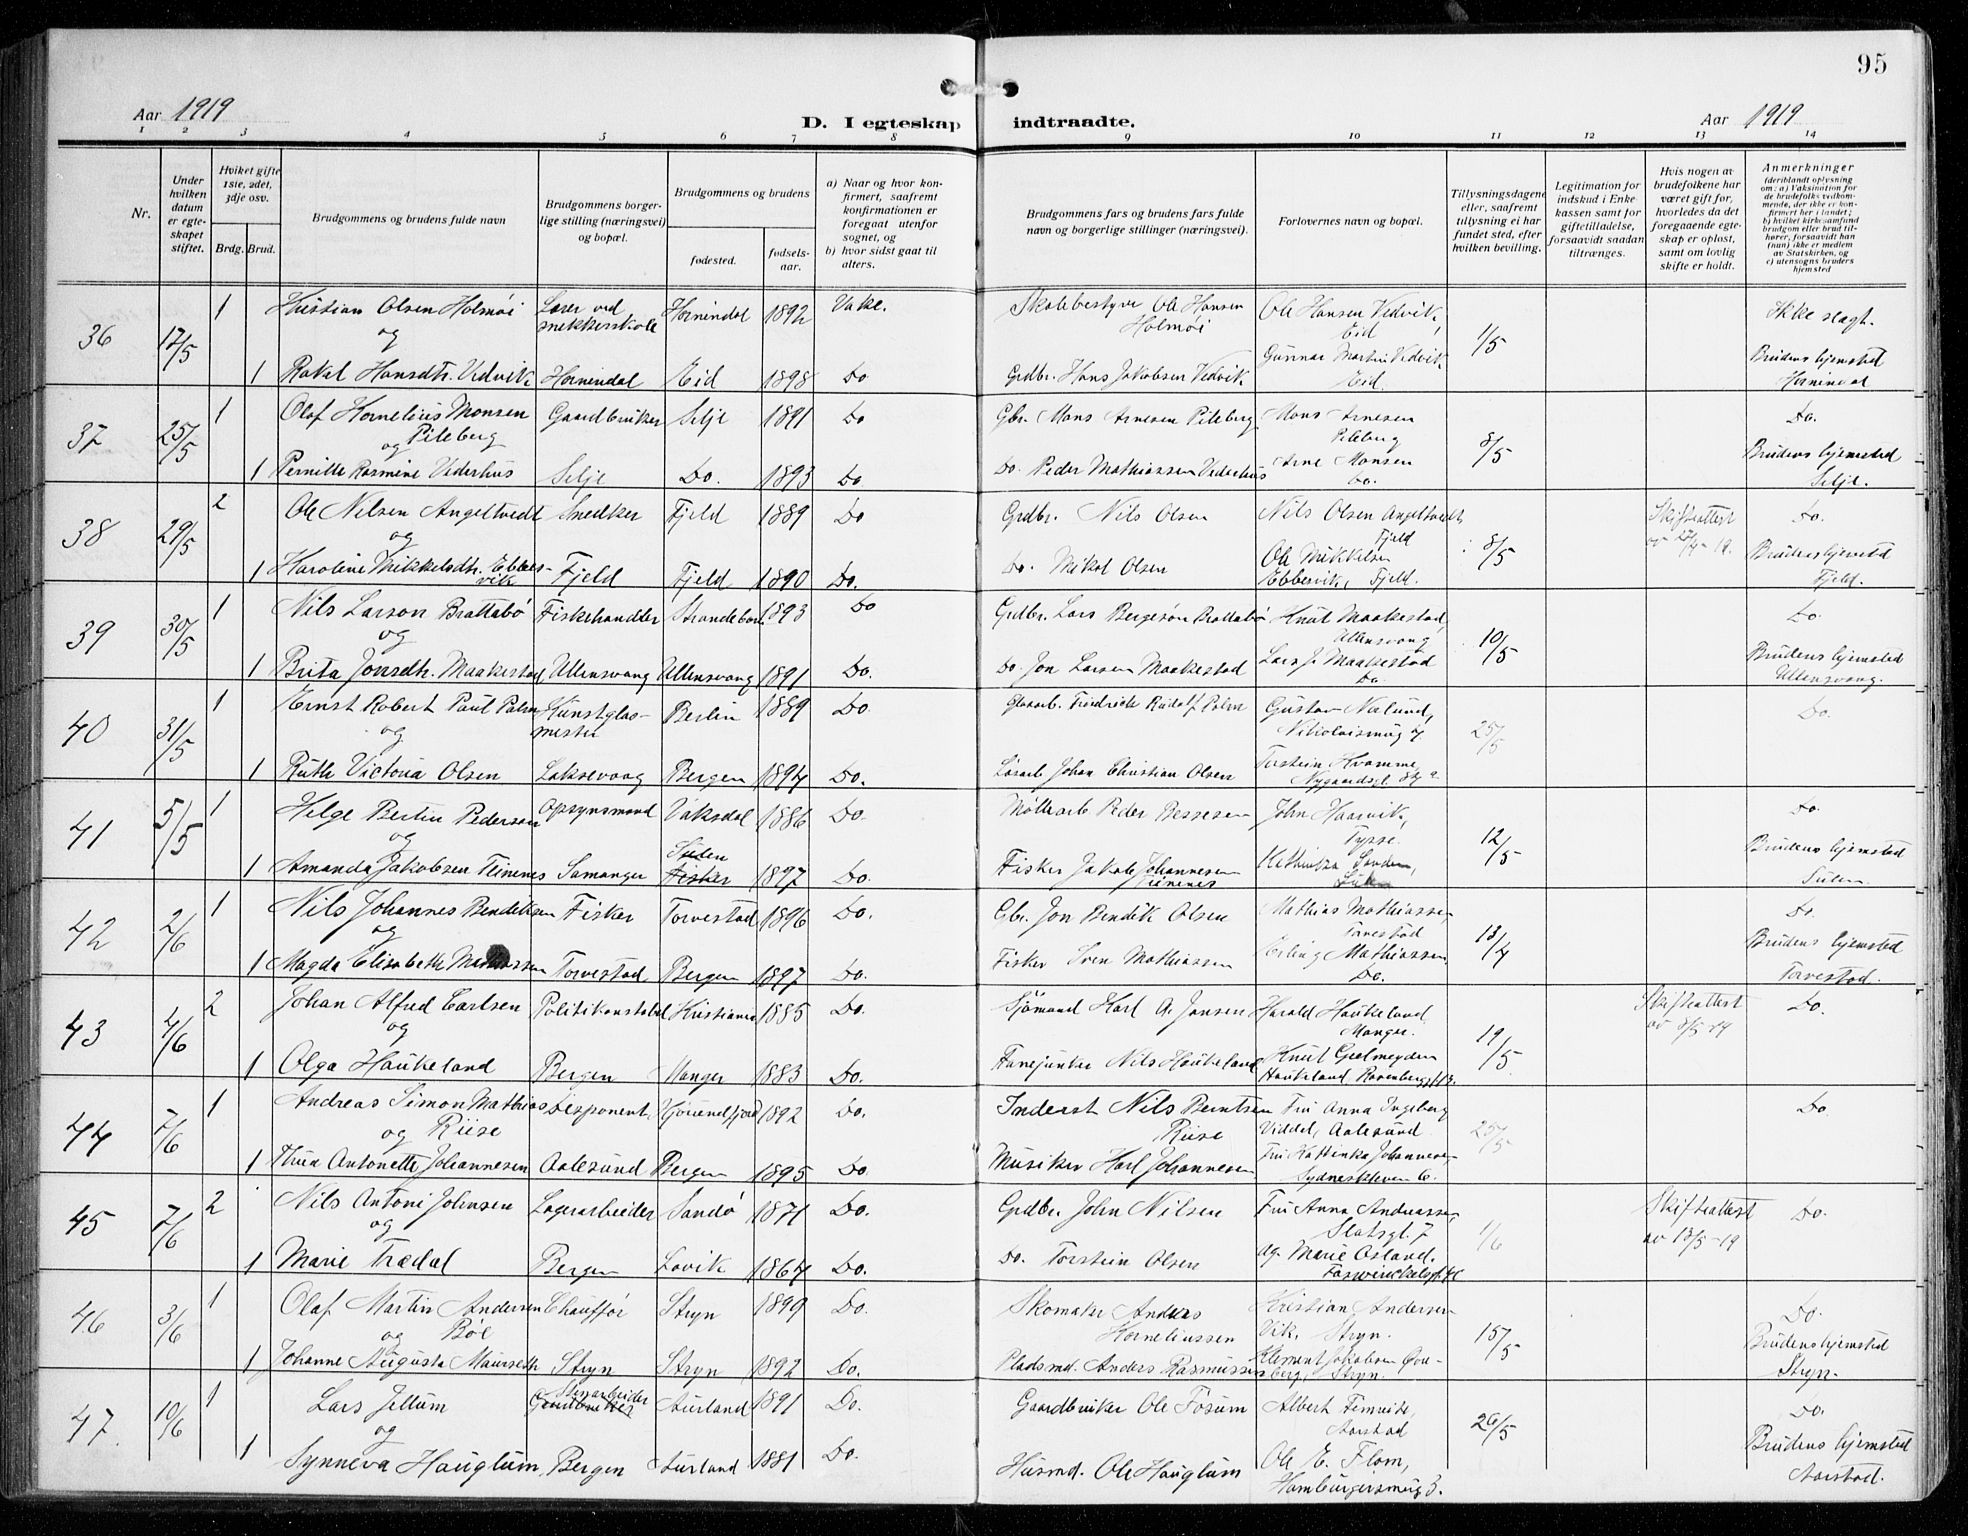 95
Aar 1919
D. I egteskap indtraadte.
Aar 1919
1 2 3 4 5 6 7 8 9 10 11 12 13 14
Nr.
Under hvilken datum er egteskapet stiftet.
Hviket gifte 1ste, 2det, 3dje osv.
Brdg. Brud.
Brudgommens og brudens fulde navn
Brudgommens borgerlige stilling (næringsvei) og bopæl.
Brudgommens og brudens
fødested.
fødselsaar.
a) Naar og hvor konfirmert, saafremt konfirmationen er foregaat utenfor sognet, og
b) hvor sidst gaat til alters.
Brudgommens fars og brudens fars fulde navn og borgerlige stillinger (næringsvei).
Forlovernes navn og bopæl.
Tillysningsdagene eller, saafremt tillysning ei har fundet sted, efter hvilken bevilling.
Legitimation for indskud i Enkekassen samt for giftetilladelse, forsaavidt saadan tiltrænges.
Hvis nogen av brudefolkene har været gift for, hvorledes da det foregaaende egteskap er opløst, samt om lovlig skifte er holdt.
Anmerkninger (deriblandt oplysning om: a) Vaksination for de brudefolks vedkommende, der ikke er konfirmert her i landet; b) hvilket kirkesamfund brudgom eller brud tilhører, forsaavidt han (hun) ikke er medlem av Statskirken, og c) utensogns bruders hjemsted
36 17/5 1 Kristian Olsen Holmøi Lærer ved snekkerskole Hornindal 1892 Skolebestyrer Ole Hansen Holmøi Ole Hansen Vedvik, Eid 1/5 Ikke slegt.
og
1 Rakel Hansdtr. Vedvik Hornindal Eid 1898 Do Grdbr. Hans Jakobsen Vedvik Gunnar Martin Vedvik Eid. Brudens hjemsted Hornindal
37 25/5 1 Olaf Kornelius Monsen Pileberg Gaardbruker Selje 1891 Do Gbr. Mons Arnesen Pileberg Mons Arnesen Pileberg 8/5 Do.
og
1 Pernille Rasmine Vederhus Selje Do. 1893 Do Do. Peder Mathiassen Vederhus Arne Monsen Do. Brudens hjemsted Selje.
38 29/5 2 Ole Nilsen Angeltvedt Snedker Fjeld 1889 Do Grdbr. Nils Olsen Nils Olsen Angeltvedt, Fjeld 8/5 Skifteattest Do.
og
1 Karoline Mikkelsdtr. Ebbesvik Fjeld Fjeld 1890 Do. Do. Mikal Olsen Ole Mikkelsen Ebbesvik, Fjeld. Brudens hjemsted Fjeld.
39 30/5 1 Nils Larson Brattabø Fiskehandler Strandebarm 1893 Do Grdbr. Lars Bergesøn Brattabø Knut Maakestad, Ullensvang 10/5 Do.
og
1 Brita Jonsdtr. Maakestad Ullensvang Ullensvang 1891 Do. Do. Jon Larsen Maakestad Lars J. Maakestad Do. Brudens hjemsted Ullensvang.
40 31/5 1 Ernst Robert Paul Palm Kunstglasmester Berlin 1889 Do. Glasarb. Friedrich Rudolf Palm Gustav Næslund, 25/5 Do.
og
1 Ruth Victoria Olsen Laksevaag Bergen 1894 Do. Johan Christian Olsen Torstein Kvamme,
41 5/5 1 Helge Bertin Pederson Opsynsmand Vaksdal 1886 Do. Møllearb Peder Bessesen John Haarvik, Tysse. 12/5 Do.
og
1 Amanda Jakobsen Steinenes Samanger Sulen Fisker 1897 Do. Fisker Jakob Johannesen Brudens hjemsted Sulen.
42 2/6 1 Nils Johannes Bendiksen Fisker Torvestad 1896 Do. Gbr. Jon Bendik Olsen Mathias Mathiassen, Torvestad 13/4 Do.
og
1 Magda Elisabeth Mathiassen Torvestad Bergen 1897 Do. Fisker Sven Mathiassen Erling Mathiassen, Do. Brudens hjemsted Torvestad.
43 4/6 2 Johan Alfred Carlsen Politikonstabel Kristiania 1885 Do. Sjømand Karl A. Jansen Harald Haukeland Manger. 19/5 Skifteattest av 8/5-14 Do.
og
1 Olga Haukeland Bergen Manger 1883 Do. Fanejunker Nils Haukeland Knut Gjelmeyden Haukeland
44 7/6 1 Andreas Simon Mathias Riise Disponent, Hjørundfjord 1892 Do. Inderst Nils Berntsen Riise Fru Anna Ingeborg Viddal, Aalesund 25/5 Do.
og
1 Thea Antonette Johannesen Aalesund Bergen 1895 Do. Musiker Karl Johannesen Fru Kathinka Johannesen, Sydneskleven 6.
45 7/6 2 Nils Antoni Johnsen Lagerarbeider Sandø 1871 Do. Grdbr. John Nilsen Fru Anna Andreassen, 1/6 Skifteattest av 13/5-19 Do.
og
1 Marie Trædal Bergen Lavik 1864 Do. Do. Torstein Olsen og Marie Osland.
46 3/6 1 Olaf Martin Andersen Bøe Chauffør Stryn 1899 Do. Skomaker Anders Kornelinssen Kristian Andersen Vik, Stryn. 15/5 Do.
og
1 Johanne Augusta Maurseth Stryn Stryn 1892 Do. Pladsmd. Anders Rasmussen Klement Jakobsen Stryn. Brudens hjemsted Stryn.
47. 10/6 1 Lars Jellum Stenarbeider Gaardbruker Aurland 1891 Do. Gaardbruker Ole Fosum Albert Aarstad 26/5 Do.
og
1 Synneva Hauglum, Bergen Aurland 1881 Do. Husmd. Ole Hauglum Ole E. Flom, Hamburgersmug 3. Brudens hjemsted Aarstad.